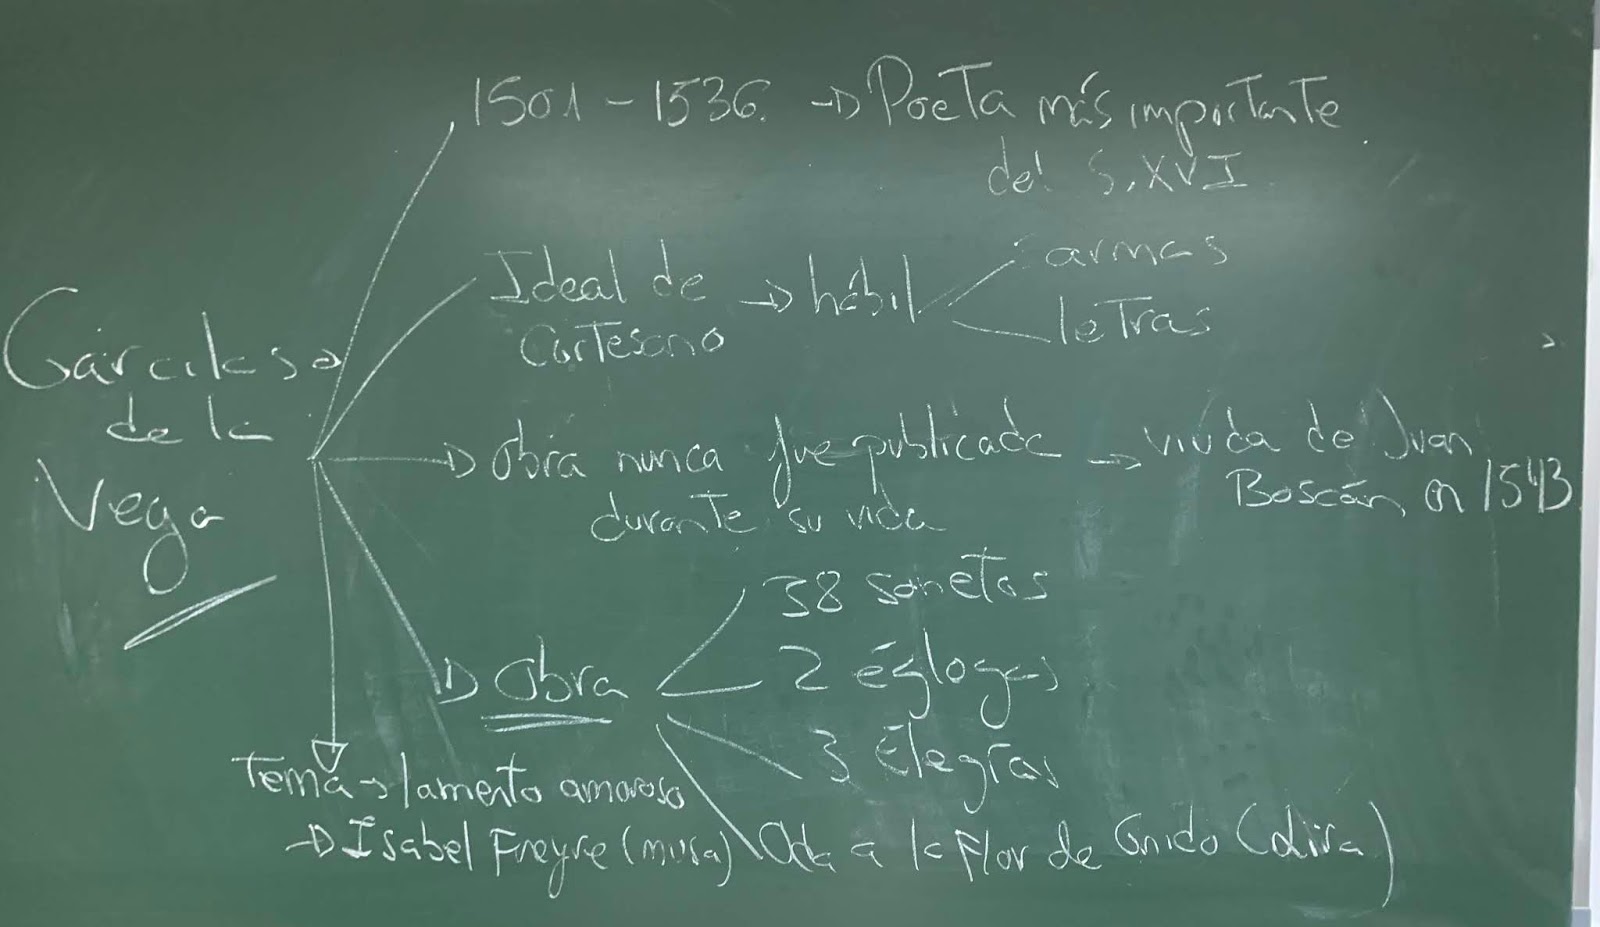 Garcilaso
de la
Vega
1501 - 1536. → Poeta más importante
del S. XVI
Ideal de
Cortesano → hábil
armas
letras
→ Obra nunca fue publicada
durante su vida
→ viuda de Juan
Boscán, en 1543
→ Obra
38 sonetos
2 églogas
3 Elegías
Oda a la Flor de Gnido (lira)
Tema → lamento amoroso
→ Isabel Freyre (musa)